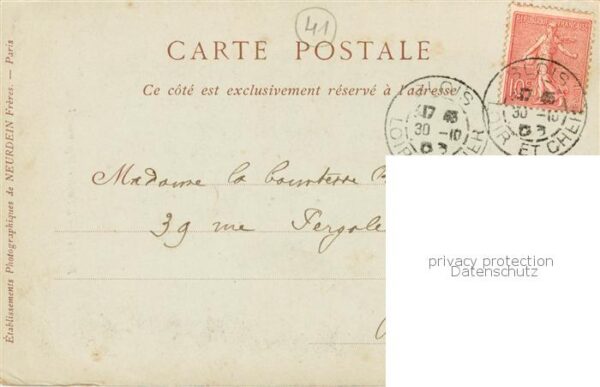 41
CARTE POSTALE
Ce côté est exclusivement réservé à l'adresse
REPUBLIQUE FRANÇAISE
BLOIS
17
30 -10
03
LOIR
ER
BLOIS
17
30 -10
03
LOIR ET CHER
Madame la
39 rue Pergole
privacy protection
Datenschutz
Établissements Photographiques de NEURDEIN Frères. — Paris